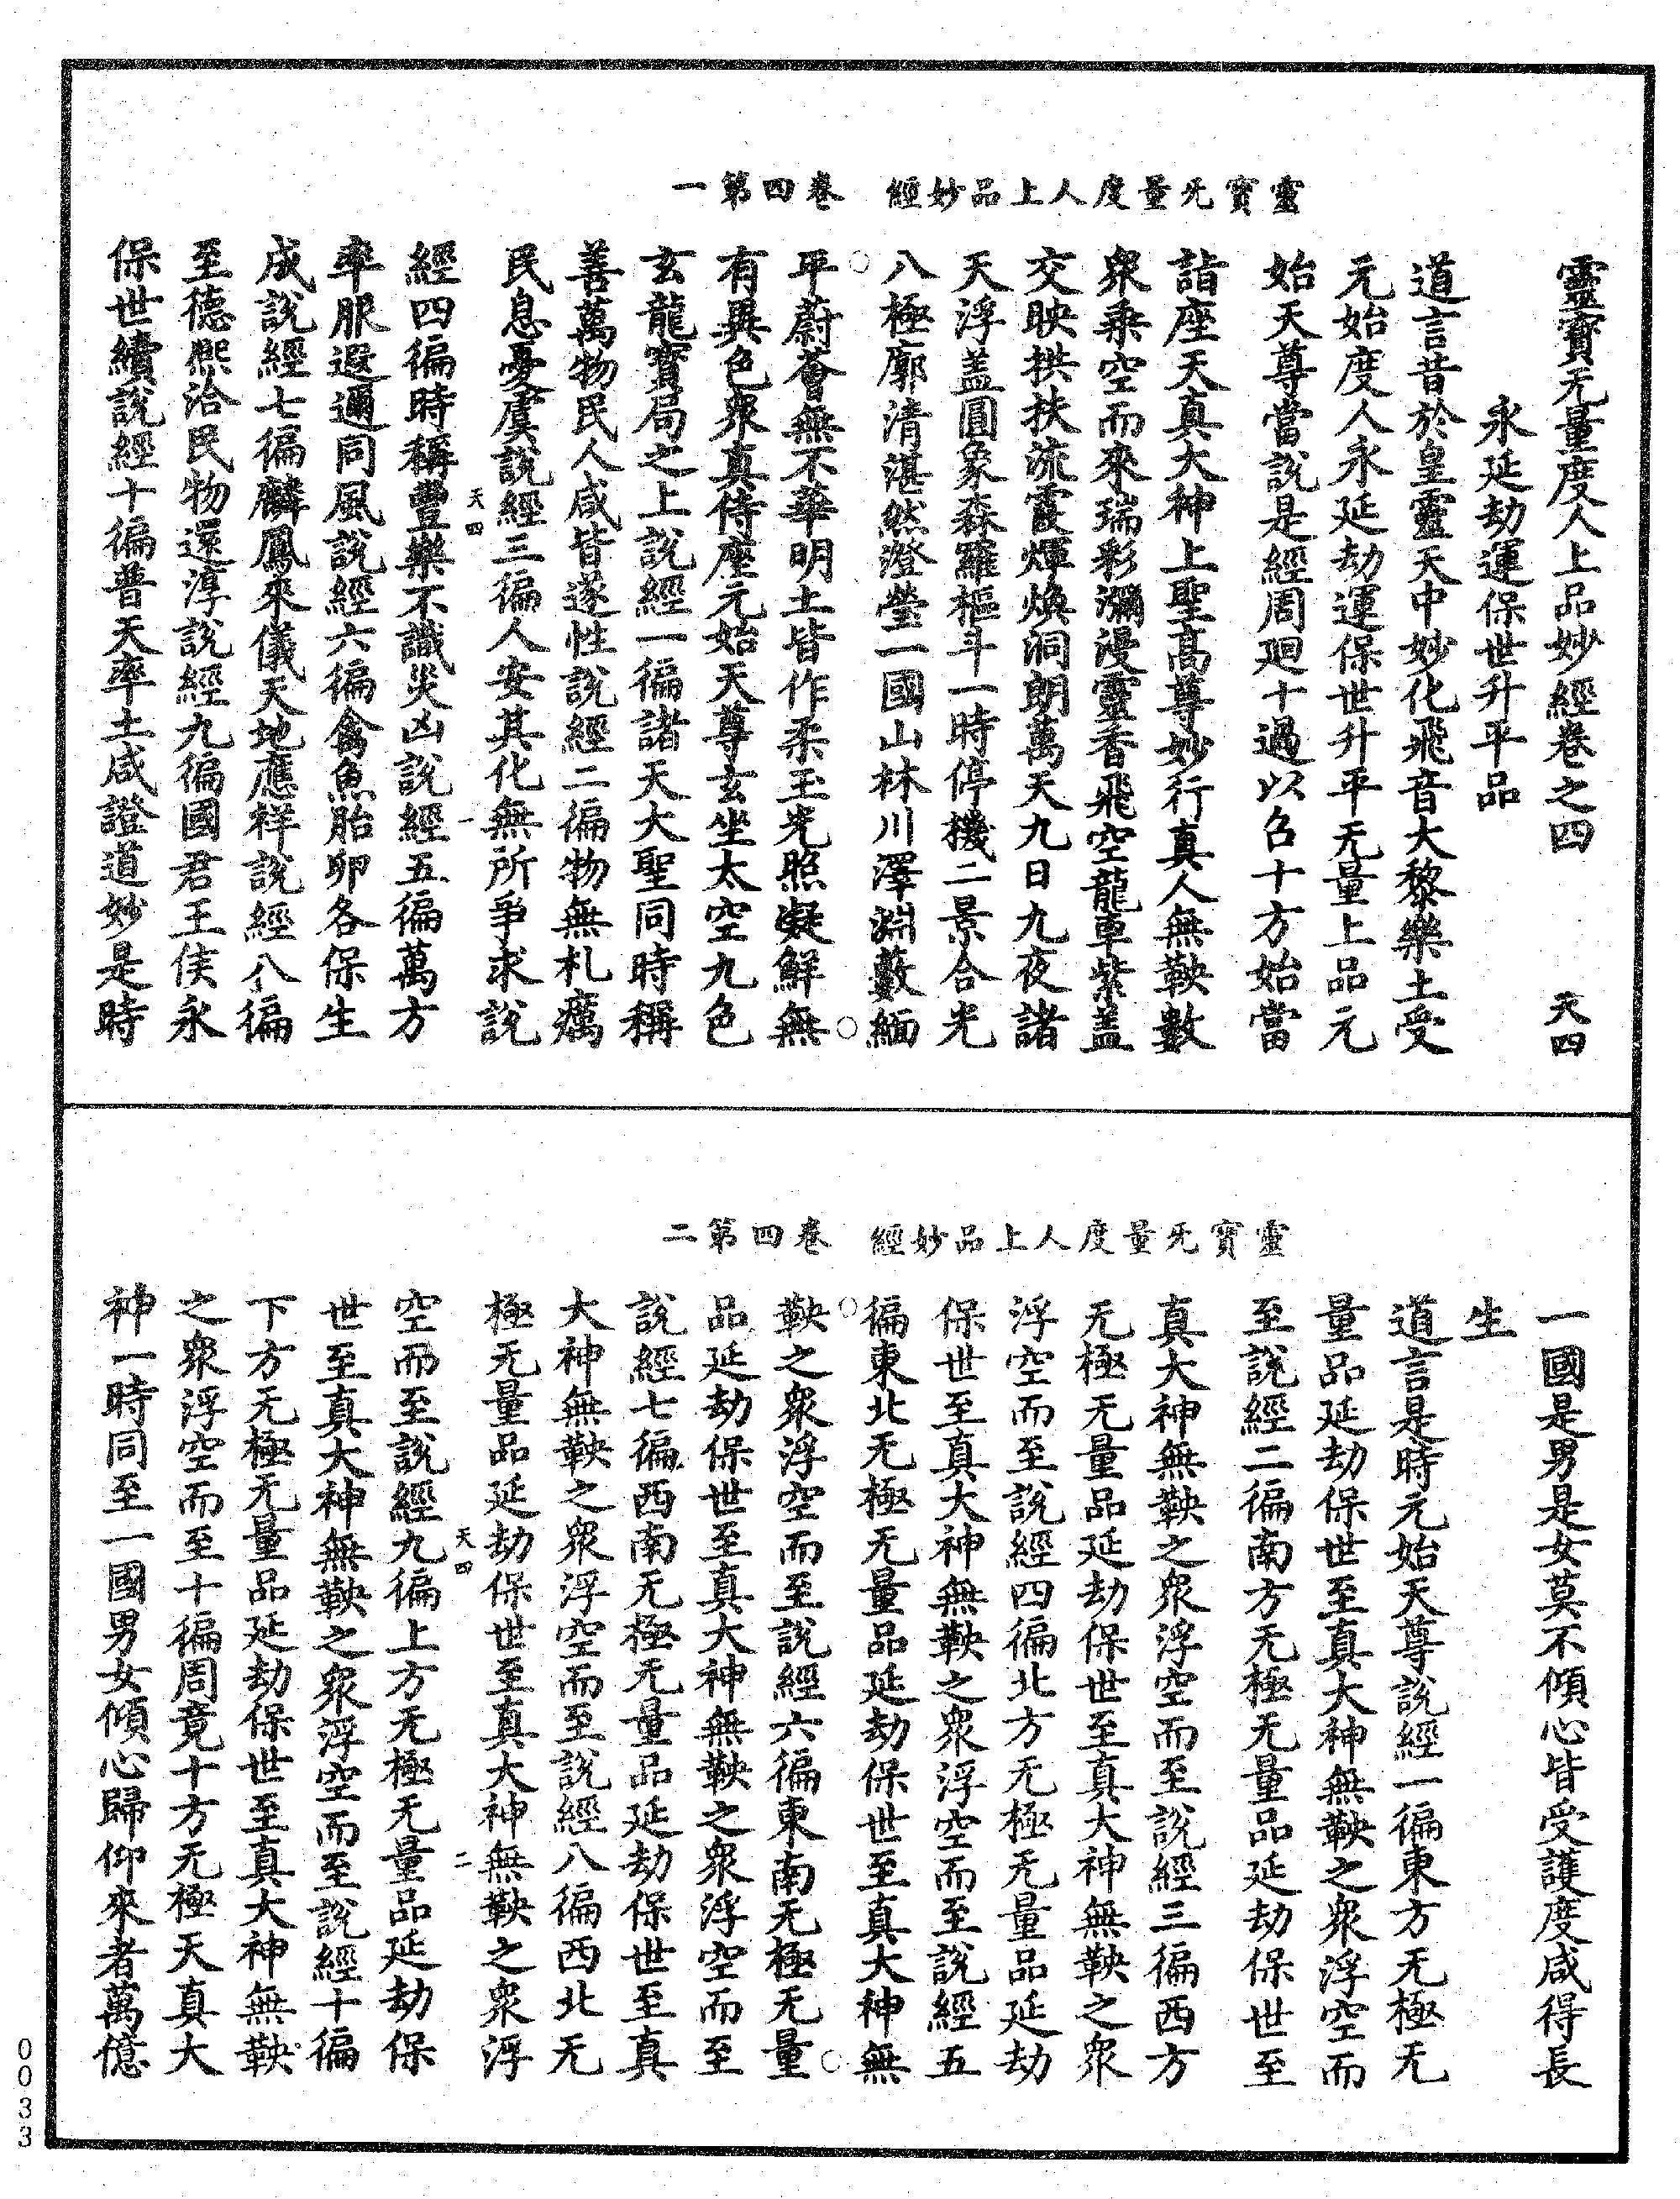 靈寶无量度人上品妙經　卷四第一
靈寶无量度人上品妙經卷之四　天四
永延劫運保世升平品
道言昔於皇靈天中妙化飛音大黎樂土受
元始度人永延劫運保世升平无量上品元
始天尊當說是經周迴十過以召十方始當
詣座天真大神上聖高尊妙行真人無鞅數
衆乘空而來瑞彩瀰漫靈香飛空龍車紫盖
交映拱扶流霞煇煥洞朗萬天九日九夜諸
天浮盖圓象森羅樞斗一時停機二景合光
八極廓清湛然澄瑩一國山林川澤淵藪緬
平蔚薈無不華明土皆作柔玉光照凝鮮無
有異色衆真侍座元始天尊玄坐太空九色
玄龍寶局之上說經一徧諸天大聖同時稱
善萬物民人咸皆遂性說經二徧物無札癘
民息憂虞說經三徧人安其化無所爭求說
天四　一
經四徧時稱豐樂不識災凶說經五徧萬方
率服遐邇同風說經六徧禽魚胎卵各保生
成說經七徧麟鳳來儀天地應祥說經八徧
至德熙洽民物還淳說經九徧國君王侯永
保世續說經十徧普天率土咸證道妙是時
靈寶无量度人上品妙經　卷四第二
一國是男是女莫不傾心皆受護度咸得長
生
道言是時元始天尊說經一徧東方无極无
量品延劫保世至真大神無鞅之衆浮空而
至說經二徧南方无極无量品延劫保世至
真大神無鞅之衆浮空而至說經三徧西方
无極无量品延劫保世至真大神無鞅之衆
浮空而至說經四徧北方无極无量品延劫
保世至真大神無鞅之衆浮空而至說經五
徧東北无極无量品延劫保世至真大神無
鞅之衆浮空而至說經六徧東南无極无量
品延劫保世至真大神無鞅之衆浮空而至
說經七徧西南无極无量品延劫保世至真
大神無鞅之衆浮空而至說經八徧西北无
極无量品延劫保世至真大神無鞅之衆浮
天四　二
空而至說經九徧上方无極无量品延劫保
世至真大神無鞅之衆浮空而至說經十徧
下方无極无量品延劫保世至真大神無鞅
之衆浮空而至十徧周竟十方无極天真大
神一時同至一國男女傾心歸仰來者萬億
0033